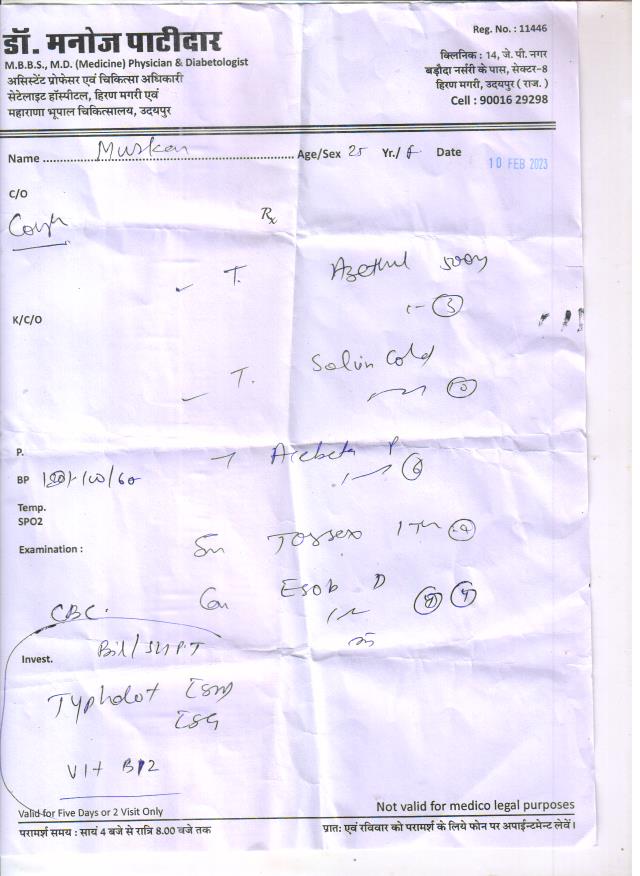 डॉ. मनोज पाटीदार
M.B.B.S., M.D. (Medicine) Physician & Diabetologist
असिस्टेंट प्रोफेसर एवं चिकित्सा अधिकारी
सेटेलाइट हॉस्पीटल, हिरण मगरी एवं
महाराणा भूपाल चिकित्सालय, उदयपुर
Reg. No. : 11446
क्लिनिक : 14, जे. पी. नगर
बड़ौदा नर्सरी के पास, सेक्टर-8
हिरण मगरी, उदयपुर ( राज. )
Cell : 90016 29298
Name Muskan Age/Sex 25 Yr./ f Date 10 FEB 2023
C/O
Cough
Rx
T. 500
3
K/C/O
T. Solvin Cold
10
P.
P
6
BP
Temp.
SPO2
Examination :
Tossex
Esob D
CBC.
Invest.
Bil/SGPT
Typhdot IgM
IgG
Vit B12
Valid for Five Days or 2 Visit Only
Not valid for medico legal purposes
परामर्श समय : सायं 4 बजे से रात्रि 8.00 बजे तक
प्रातः एवं रविवार को परामर्श के लिये फोन पर अपाईन्टमेन्ट लेवें।